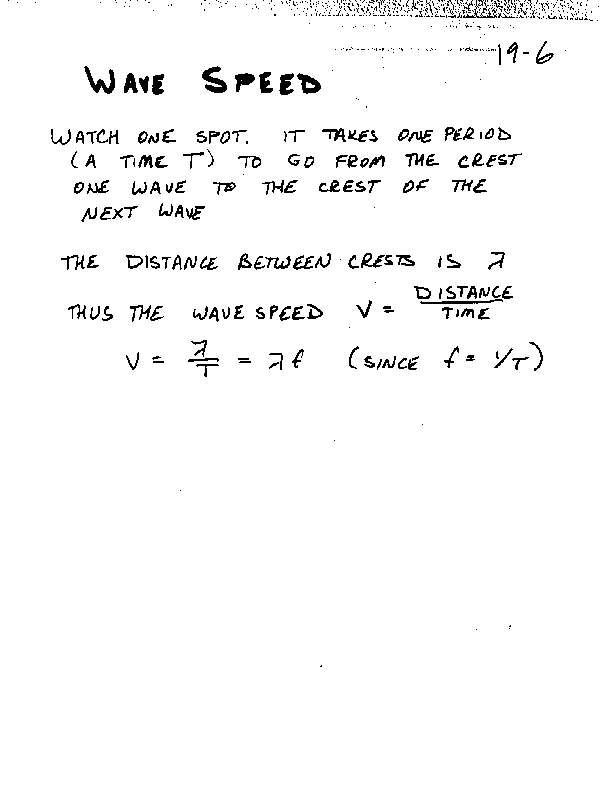 19-6
WAVE SPEED
WATCH ONE SPOT. IT TAKES ONE PERIOD
(A TIME T) TO GO FROM THE CREST
ONE WAVE TO THE CREST OF THE
NEXT WAVE
THE DISTANCE BETWEEN CRESTS IS λ
THUS THE WAVE SPEED V = DISTANCE/TIME
V = λ/T = λf (SINCE f = 1/T)